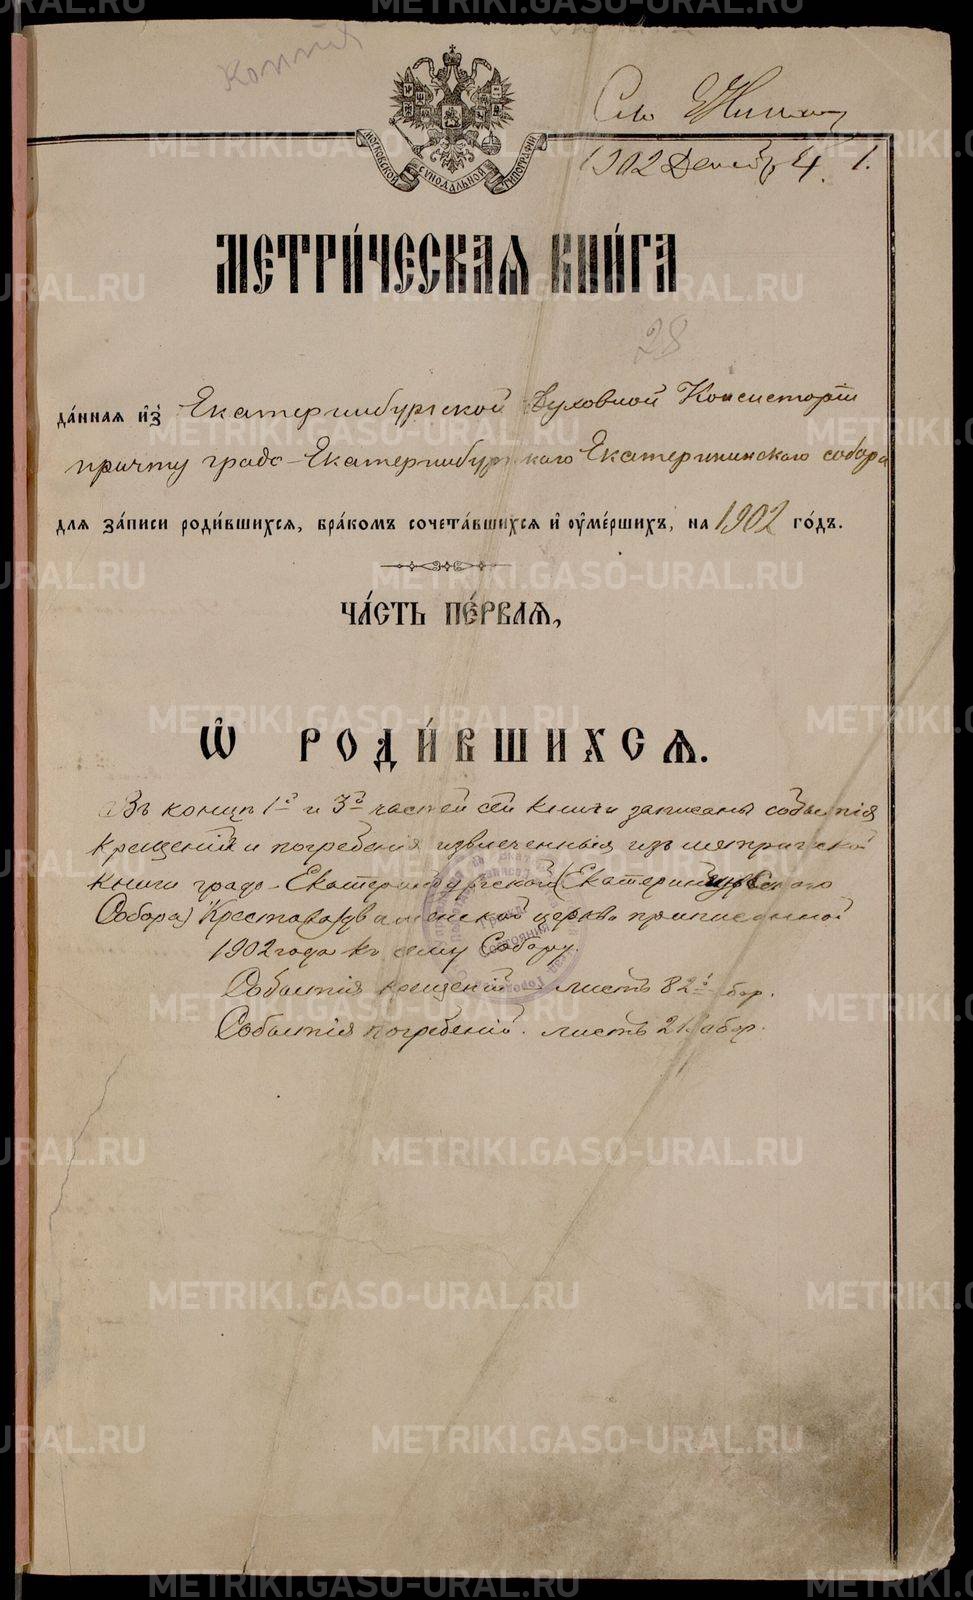 Копия
1902 Декабр 4. 1.
МОСКОВСКОЙ СѴНОДАЛЬНОЙ ТИПОГРАФІИ
МЕТРИ́ЧЕСКАѦ КНИ́ГА
28
да́нная и҆з̾ Екатеринбургской Духовной Консисторіи
причту градо-Екатеринбургскаго Екатерининскаго собора
для за́писи роди́вшихся, бра́комъ сочета́вшихся и҆ ᲂу҆ме́ршихъ, на 1902 го́дъ.
ЧА́СТЬ ПЕ́РВАѦ,
Ѡ҆ РОДИ́ВШИХСѦ.
Въ концѣ 1й и 3й частей сей книги записаны событія
крещенія и погребенія извлеченныя изъ метрической
книги градо-Екатеринбургской (Екатерининскаго
Собора) Крестовоздвиженской церкви приписанной
1902 года къ сему Собору.
Событія крещеній – листъ 82й обор.
Событія погребеній. листъ 21 обор.
METRIKI.GASO-URAL.RU